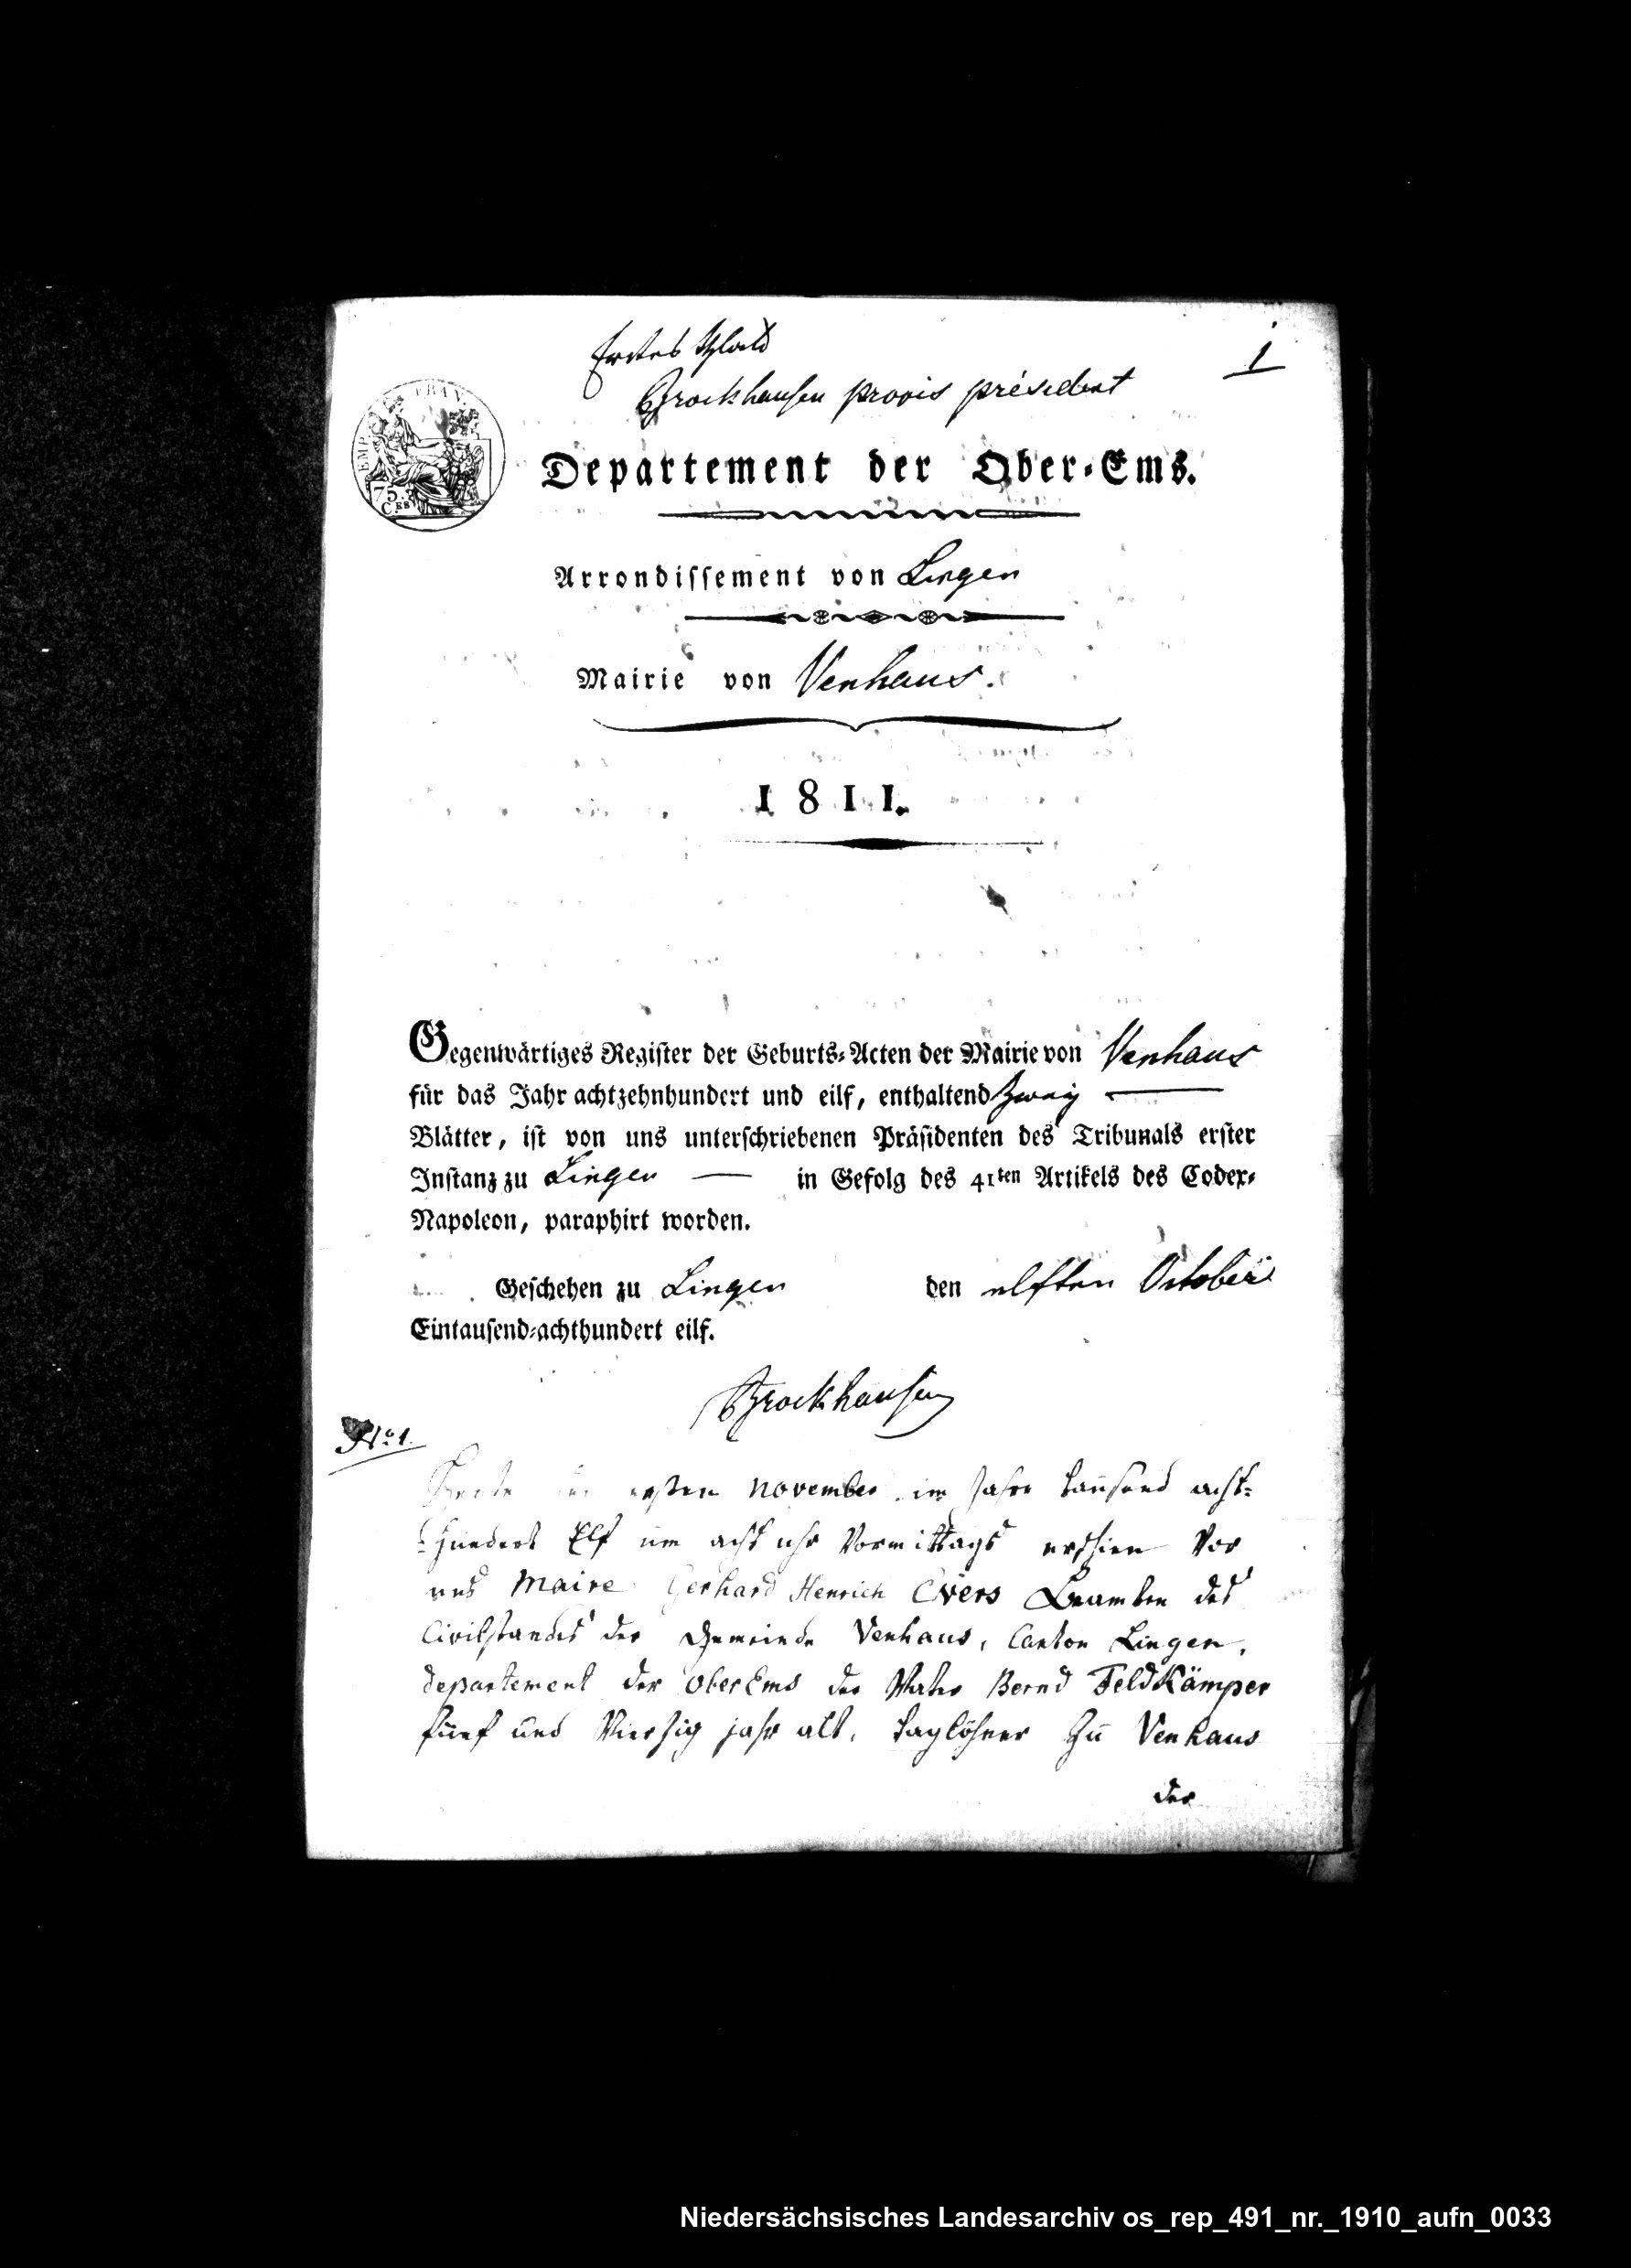 Erstes Blatt
1
Brockhausen provis président
EMP. FRAN.
75.
CEN
Departement der Ober-Ems.
Arrondissement von Lingen
Mairie von Venhaus.
1811.
Gegenwärtiges Register der Geburts-Acten der Mairie von Venhaus
für das Jahr achtzehnhundert und eilf, enthaltend zwey
Blätter, ist von uns unterschriebenen Präsidenten des Tribunals erster
Instanz zu Lingen — in Gefolg des 41ten Artikels des Codex-
Napoleon, paraphirt worden.
Geschehen zu Lingen den elften October
Eintausend-achthundert eilf.
Brockhausen
No. 1.
Heute den ersten November im Jahre tausend acht-
hundert Elf um acht uhr Vormittags erschien Vor
uns Maire Gerhard Henrich Evers Beamten des
Civilstandes der Gemeinde Venhaus, Canton Lingen,
departement der OberEms der Vater Bernd Feldkämper
fünf und Vierzig jahr alt, taglöhner zu Venhaus
der
Niedersächsisches Landesarchiv os_rep_491_nr._1910_aufn_0033